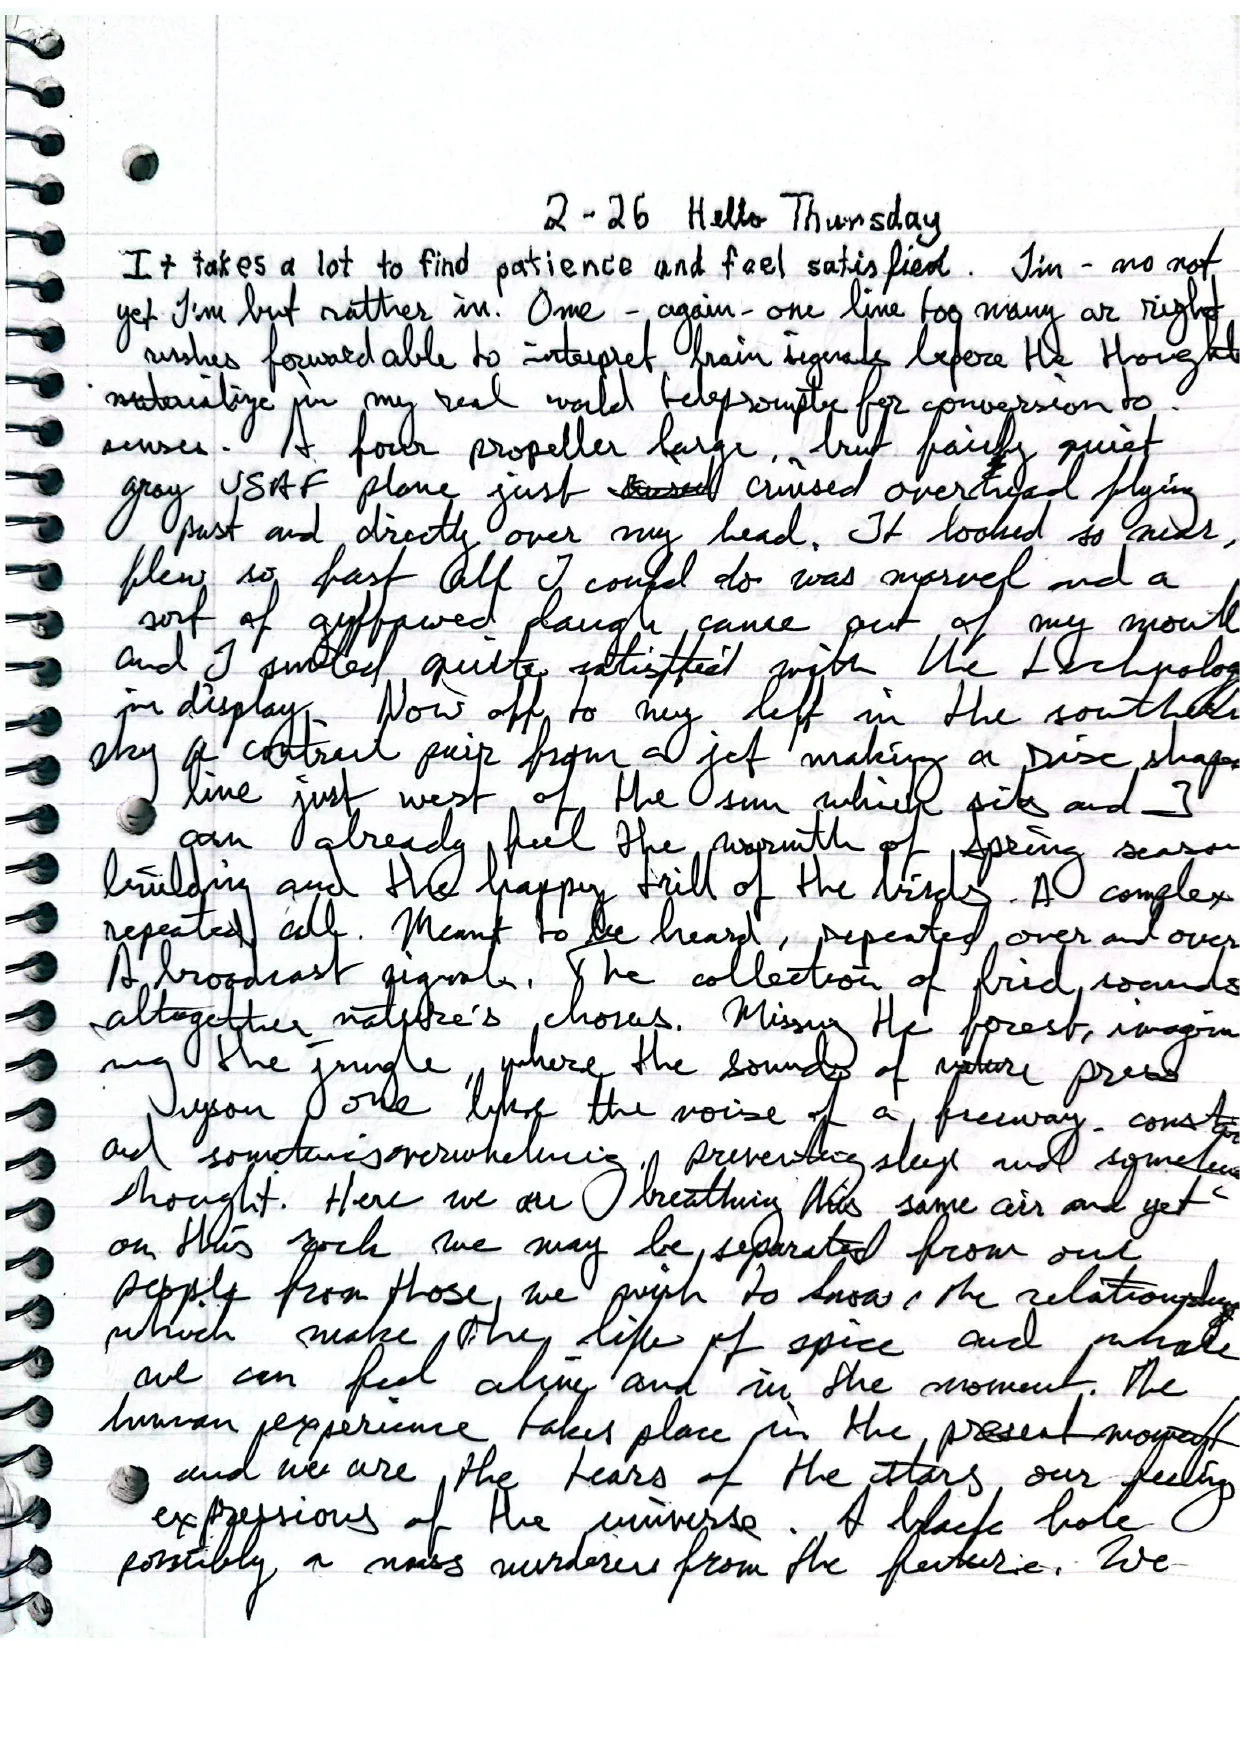 2-26 Hello Thursday
It takes a lot to find patience and feel satisfied. I'm - no not
yet I'm but rather in. One - again - one line too many or right
rushes forward able to interpret brain signals before the thought
materialize in my real world teleprompter for conversion to
senses. A four propeller large, but fairly quiet
gray USAF plane just cruised overhead flying
past and directly over my head. It looked so near,
flew so fast all I could do was marvel and a
sort of guffawed laugh came out of my mouth
and I smiled quite satisfied with the technolog
in display. Now off to my left in the southern
sky a contrail pair from a jet making a disc shape
line just west of the sun which sits and I
can already feel the warmth of spring season
building and the happy trill of the birds. A complex
repeated call. Meant to be heard, repeated over and over
A broadcast signal. The collection of bird sounds
altogether nature's chorus. Missing the forest, imagin
ing the jungle, where the sounds of nature press
upon one like the noise of a freeway. constan
and sometimes overwhelming, preventing sleep and sometimes
thought. Here we are breathing this same air and yet
on this rock we may be separated from our
people from those we wish to know, the relationships
which make the life of spice and where
we can feel alive and in the moment. The
human experience takes place in the present moment
and we are the tears of the stars our feeling
expressions of the universe. A black hole
possibly a mass murderer from the future. We